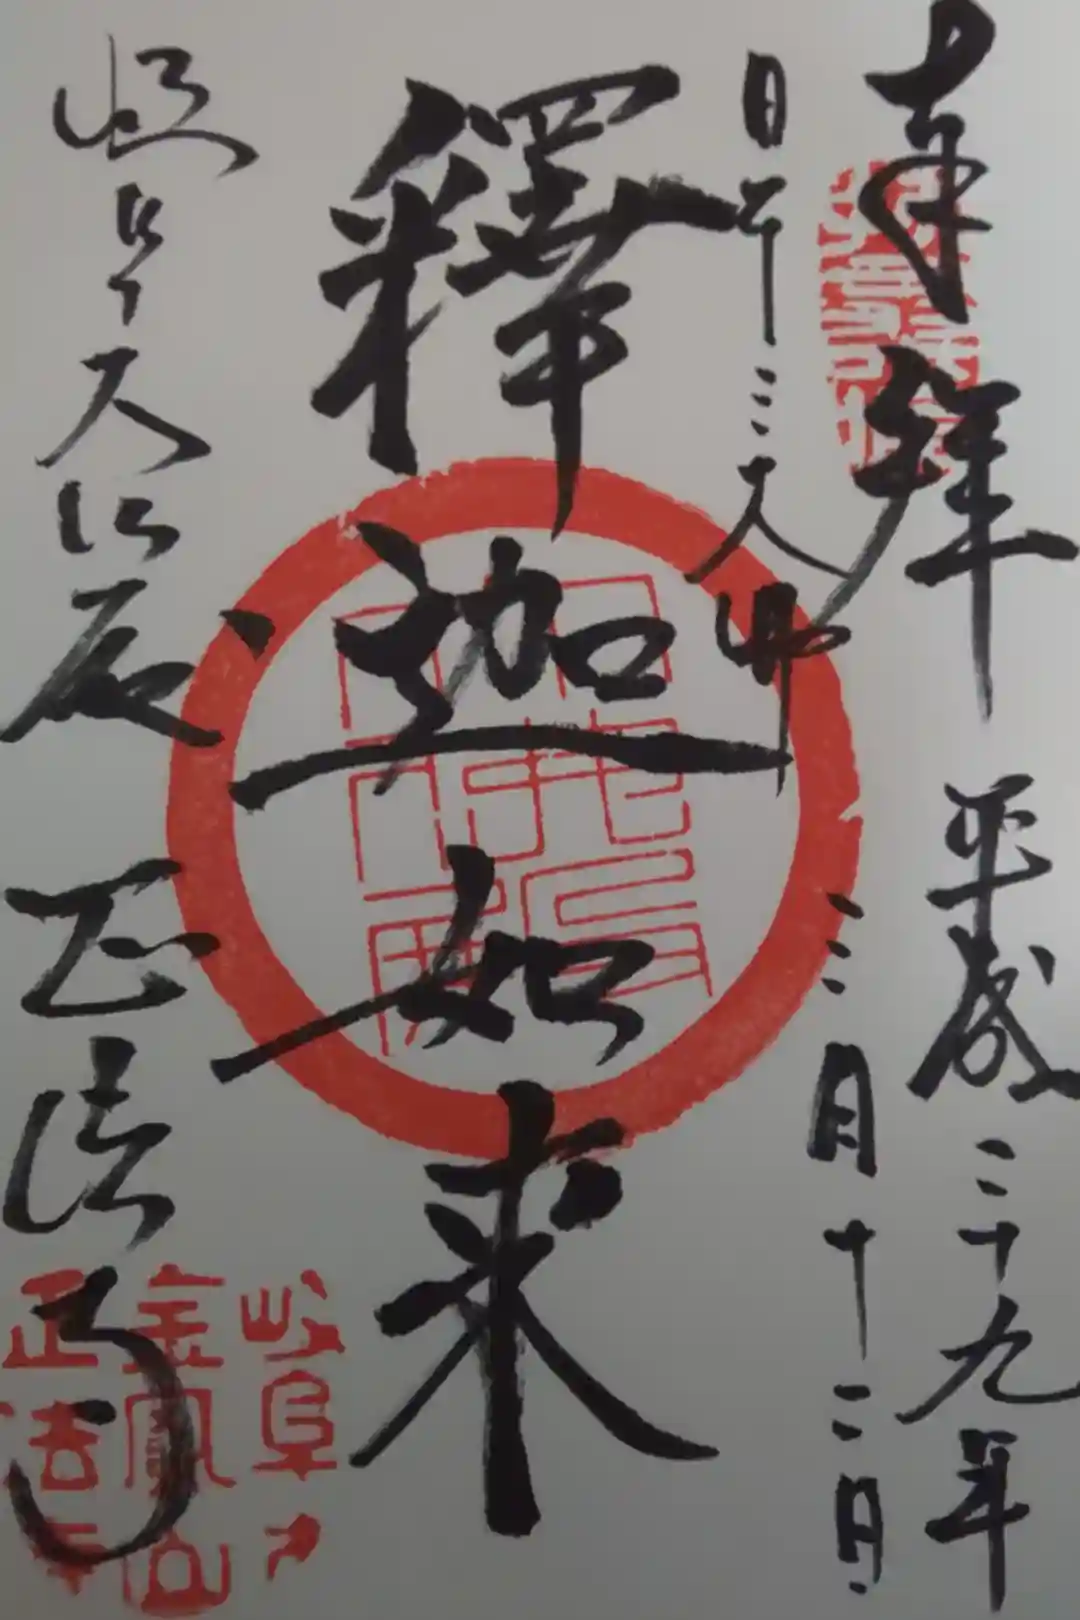 奉拜
平成二十九年
三月十二日
日本三大佛
釋迦如来
岐阜大仏殿
正法寺
岐阜
金鳳山
正法